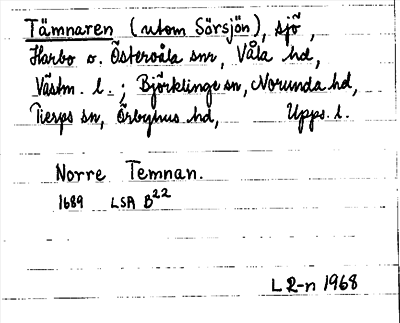 Tämnaren (utom Sörsjön), sjö,
Harbo o. Östervåla snr, Våla hd,
Västm. l.; Björklinge sn, Norunda hd,
Tierps sn, Örbyhus hd, Upps. l.
Norre Temnan.
1689 LSA B22
L R-n 1968